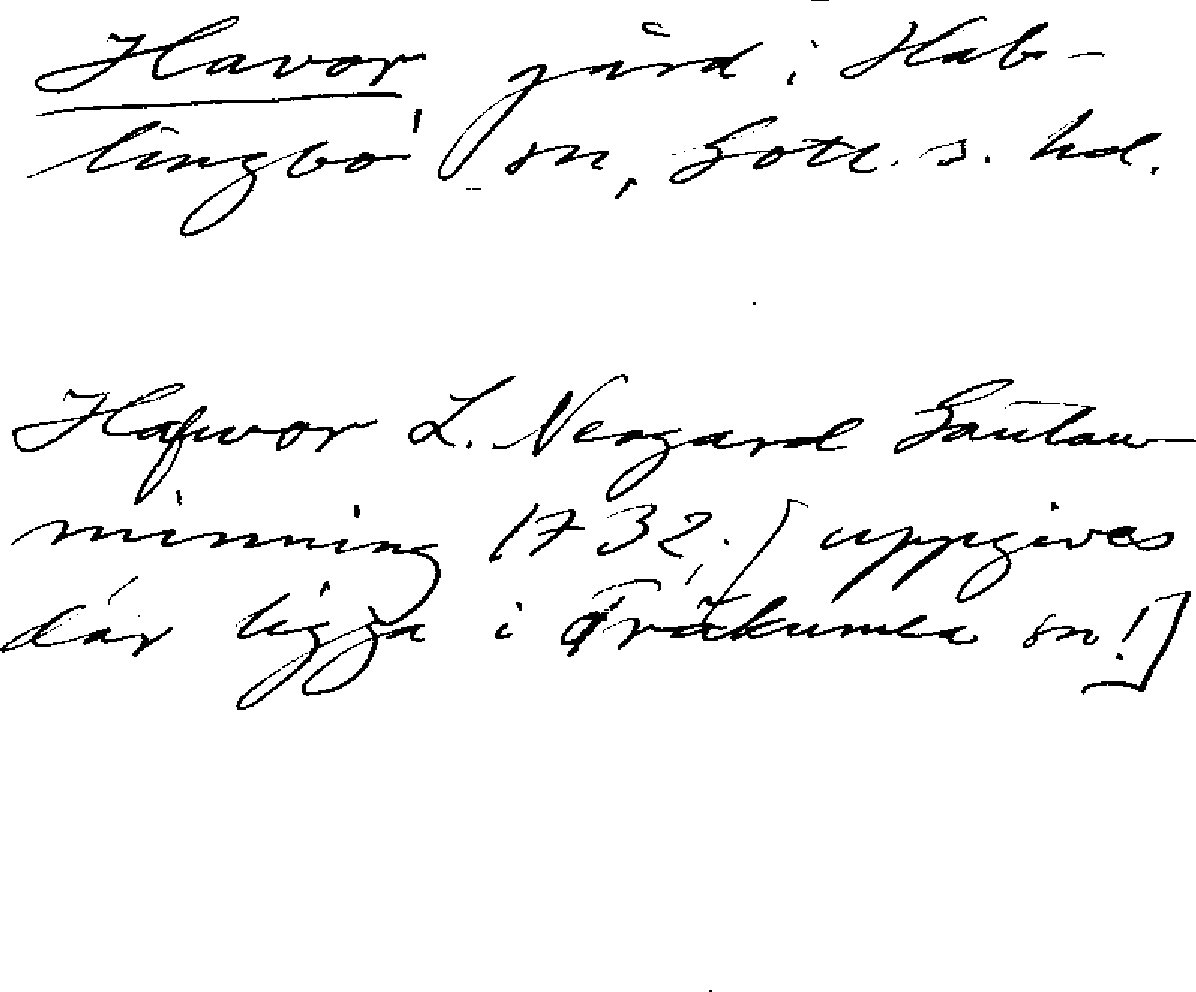 Havor, gård i Hab-
lingbo sn, Gotl. s. hd.
Hafwor L. Neogard Gautau-
minning 1732. [uppgives
där ligga i Träkumla sn!]